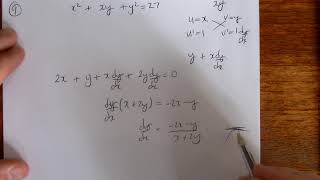 9
x² + xy + y² = 27
xy
u = x v = y
u' = 1 v' = 1 dy/dx
y + x dy/dx
2x + y + x dy/dx + 2y dy/dx = 0
dy/dx (x + 2y) = -2x - y
dy/dx = (-2x - y)/(x + 2y)